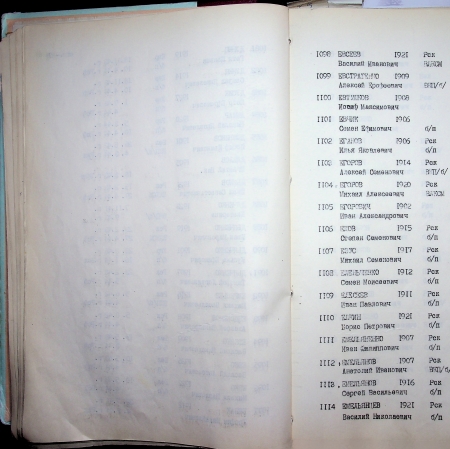 1098 ЕВСЕЕВ 1921 Рск
Василий Иванович ВЛКСМ
1099 ЕВСТРАТЕНКО 1909
Алексей Ерофеевич ВКП/б/
1100 1908
Иосиф Максимович
1101 1906
Семен Ефимович б/п
1102 1906 Рск
Илья Яковлевич б/п
1103 ЕГОРОВ 1914 Рск
Алексей Семенович ВКП/б/
1104 ЕГОРОВ 1920 Рск
Михаил Алексеевич ВЛКСМ
1105 ЕГОРОВИЧ 1902
Иван Александрович
1106 1915 Рск
Степан Семенович б/п
1107 1917 Рск
Михаил Семенович б/п
1108 1912 Рск
Семен Моисеевич б/п
1109 ЕЛИСЕЕВ 1911 Рск
Иван Павлович б/п
1110 1921 Рск
Борис Петрович б/п
1111 ЕМЕЛЬЯНЕНКО 1907 Рск
Иван Филиппович б/п
1112 ЕМЕЛЬЯНОВ 1907 Рск
Анатолий Иванович ВКП/б/
1113 ЕМЕЛЬЯНОВ 1916 Рск
Сергей Васильевич б/п
1114 ЕМЕЛЬЯНЦЕВ 1921 Рск
Василий Николаевич б/п